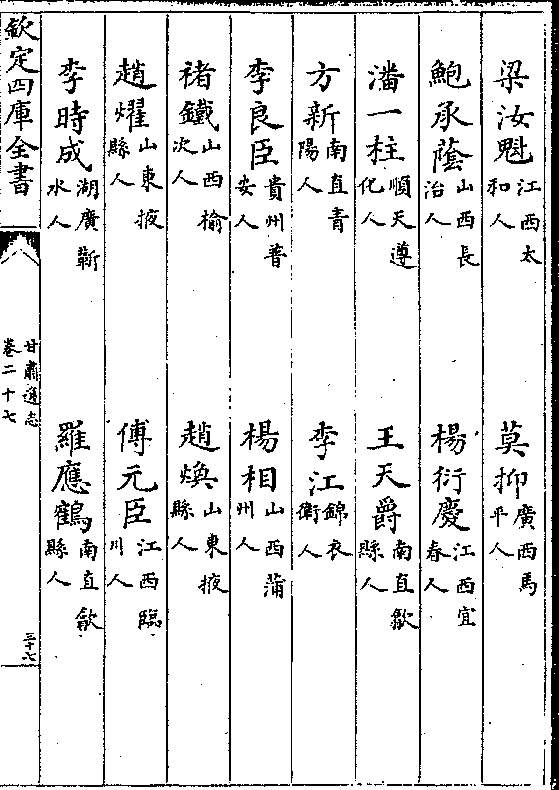 梁汝魁江西太和人　莫抑廣西馬平人
鮑承蔭山西長治人　楊衍慶江西宜春人
潘一柱順天遵化人　王天爵南直歙縣人
方新南直青陽人　李江錦衣衛人
李良臣貴州普安人　楊相山西蒲州人
褚鐵山西榆次人　趙煥山東掖縣人
趙燿山東掖縣人　傅元臣江西臨川人
李時成湖廣蘄水人　羅應鶴南直歙縣人
欽定四庫全書
甘肅通志
卷二十七
三十六